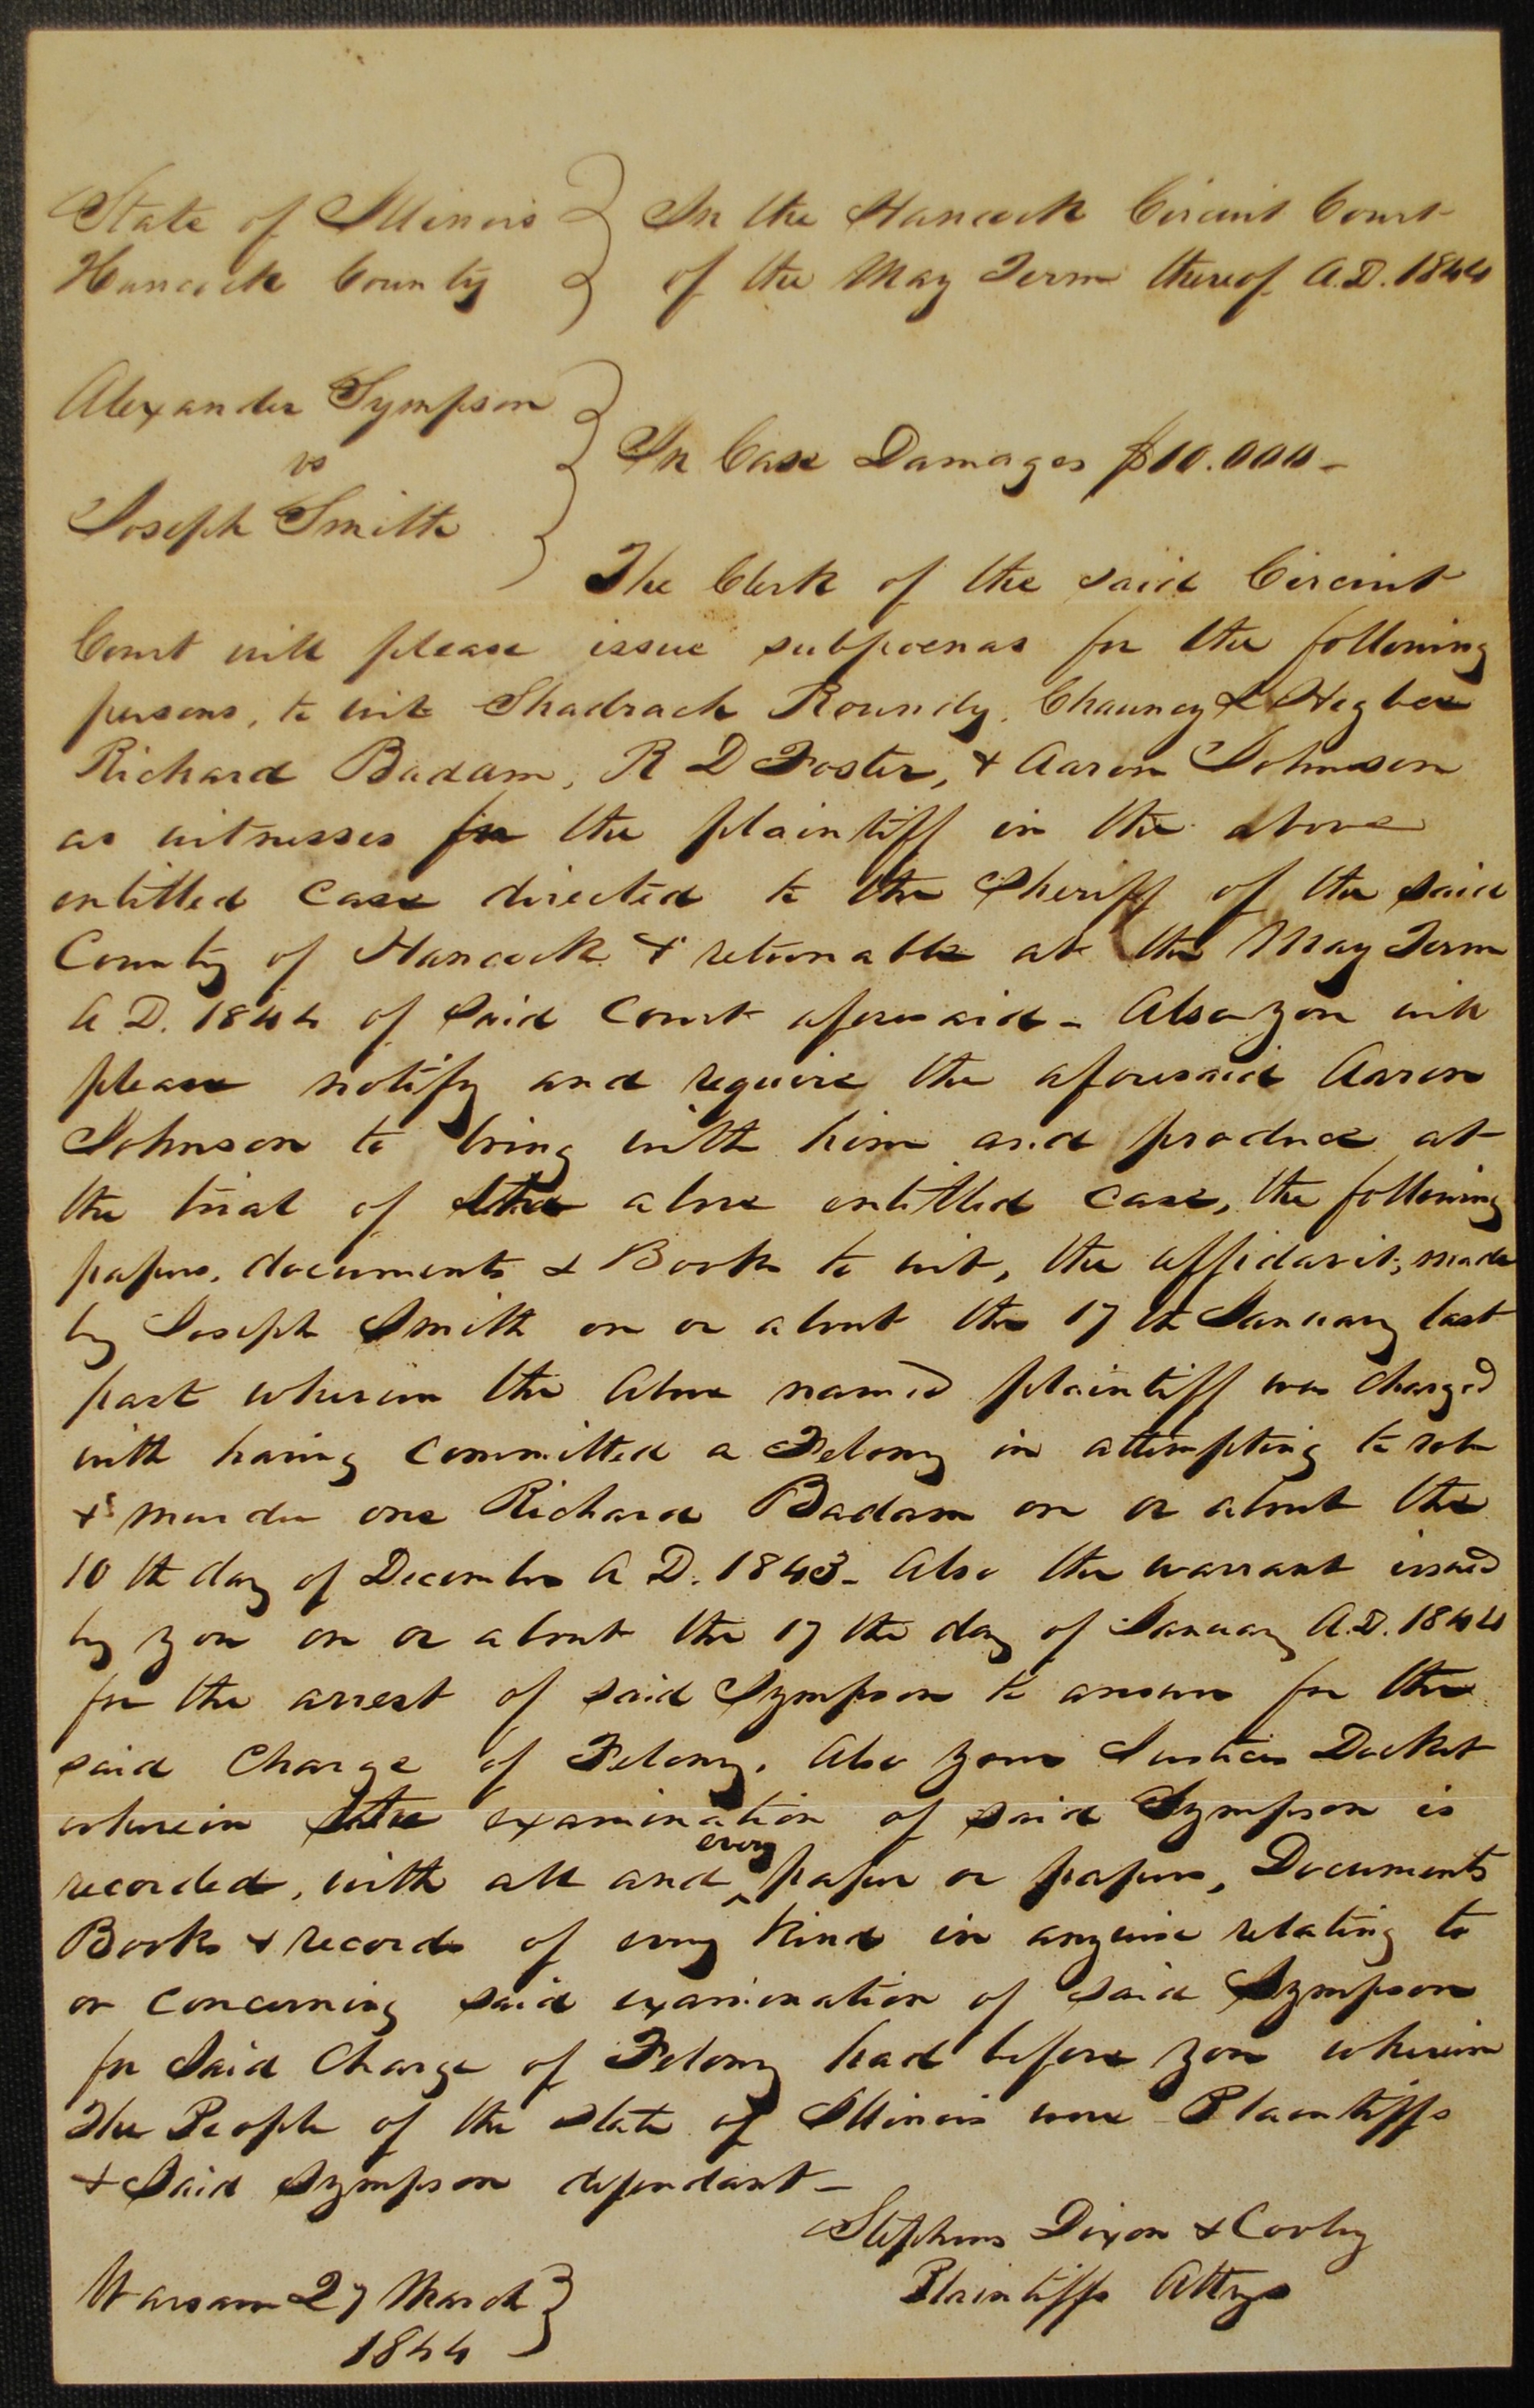 State of Illinois } In the Hancock Circuit Court
Hancock County } of the May Term thereof A.D. 1844
Alexander Sympson
vs } In Case Damages $10.000 -
Joseph Smith
The Clerk of the said Circuit
Court will please issue subpoenas for the following
persons, to wit Shadrach Roundy, Chauncy L Higbee
Richard Badam, R D Foster, & Aaron Johnson
as witnesses for the plaintiff in the above
entitled case directed to the Sheriff of the said
County of Hancock & returnable at the May Term
A. D. 1844 of said Court aforesaid - Also you will
please notify and require the aforesaid Aaron
Johnson to bring with him and produce at
the trial of the above entitled case, the following
papers, documents & Books to wit, the affidavit, made
by Joseph Smith on or about the 17th January last
past wherein the above named plaintiff was charged
with having committed a Felony in attempting to rob
& murder one Richard Badam on or about the
10th day of December A D. 1843 - Also the warrant issued
by you on or about the 17the day of January A.D. 1844
for the arrest of said Sympson to answer for the
said Charge of Felony. Also your Justices Docket
wherein the examination of said Sympson is
recorded, with all and every paper or papers, Documents
Books & records of every Kind in anywise relating to
or concerning said examination of said Sympson
for said Charge of Felony had before you wherein
The People of the State of Illinois were Plaintiffs
& said Sympson defendant -
Stephens Dixon &
Plaintiffs Attys
Warsaw 27 March }
1844